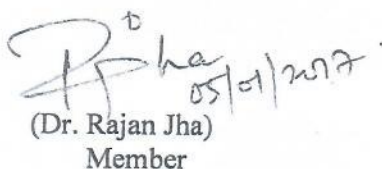 Rjha
05/01/2017
(Dr. Rajan Jha)
Member